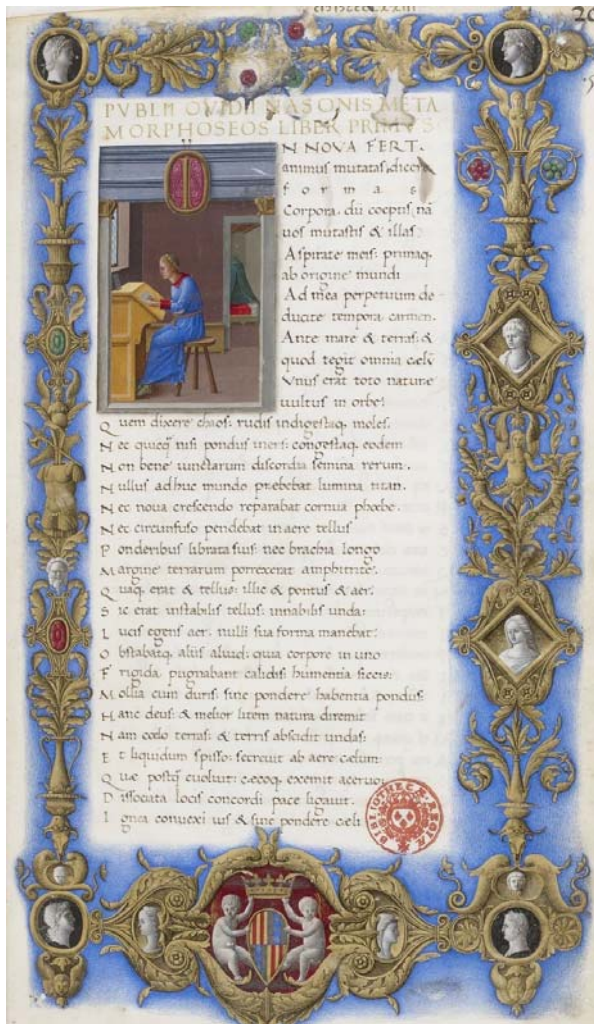 PVBLII OVIDII NASONIS META
MORPHOSEOS LIBER PRIMVS
I
N NOVA FERT
animus mutatas dicere
formas
Corpora. dii coeptis nā
uos mutastis & illas:
Aspirate meis: primaq.
ab origine mundi
Ad mea perpetuum de
ducite tempora carmen.
Ante mare & terras: &
quod tegit omnia cælū
Vnus erat toto nature
uultus in orbe:
Quem dixere chaos: rudis indigestaq. moles.
Nec quicq̄ nisi pondus iners: congestaq. eodem
Non bene iunctarum discordia semina rerum.
Nullus adhuc mundo præbebat lumina titan.
Nec noua crescendo reparabat cornua phoebe.
Nec circunfuso pendebat in aere tellus
Ponderibus librata suis: nec brachia longo
Margine terrarum porrexerat amphitrite.
Quaq. erat & tellus: illic & pontus & aer:
Sic erat instabilis tellus: innabilis unda:
Lucis egens aer: nulli sua forma manebat:
Obstabatq. aliis aliud: quia corpore in uno
Frigida pugnabant calidis: humentia siccis:
Mollia cum duris: sine pondere habentia pondus
Hanc deus: & melior litem natura diremit
Nam coelo terras: & terris abscidit undas:
Et liquidum spisso: secreuit ab aere cælum:
Quæ postq̄ euoluit: cæcoq. exemit aceruo:
Dissociata locis concordi pace ligauit.
Ignea conuexi uis & sine pondere cæli
BIBLIOTHECÆ REGIÆ